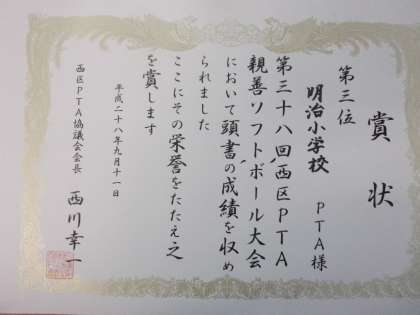 賞状
第三位
明治小学校
PTA様
第三十八回西区PTA
親善ソフトボール大会
において頭書の成績を収め
られました
ここにその栄誉をたたえ之
を賞します
平成二十八年九月十一日
西区PTA協議会会長
西川幸一